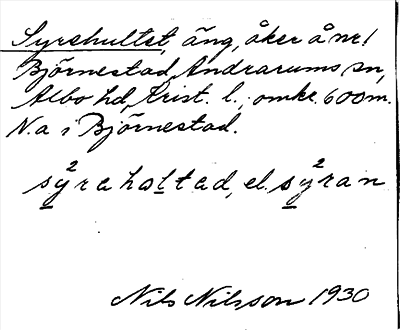 Syrehultet, äng, åker å nr 1
Björnestad, Andrarums sn,
Albo hd, Krist. l.; omkr. 600 m.
N.a i Björnestad.
sy²rahaltad, el. sy²ran
Nils Nilsson 1930